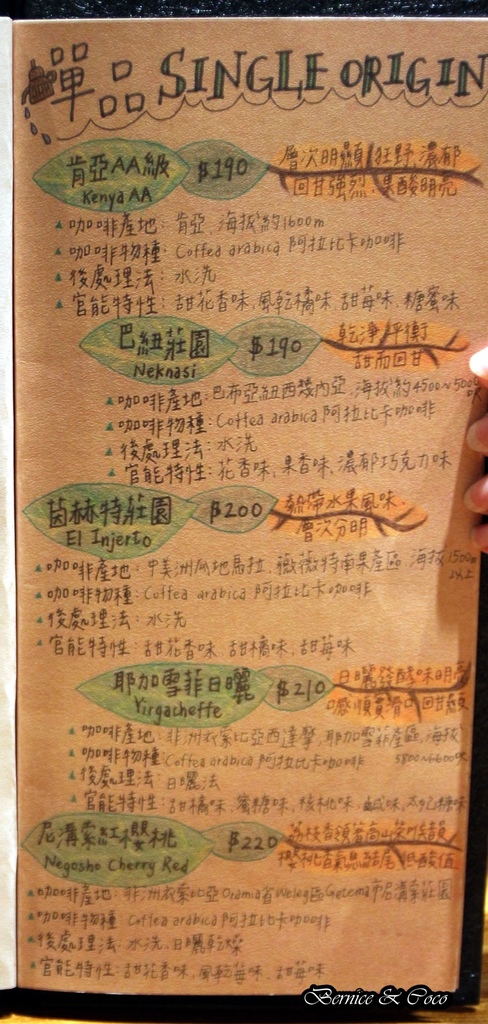 單品 SINGLE ORIGIN
肯亞AA級 $190 層次明顯 狂野、濃郁
Kenya AA 回甘強烈. 果酸明亮
咖啡產地: 肯亞, 海拔約1600m
咖啡物種: Coffea arabica 阿拉比卡咖啡
後處理法: 水洗
官能特性: 甜花香味, 風乾橘味, 甜莓味, 糖蜜味
巴紐莊園 $190 乾淨 平衡
Neknasi 甜而回甘
咖啡產地: 巴布亞紐西幾內亞, 海拔約4500~5000呎
咖啡物種: Coffea arabica 阿拉比卡咖啡
後處理法: 水洗
官能特性: 花香味, 果香味, 濃郁巧克力味
茵赫特莊園 $200 熱帶水果風味.
El Injerto 層次分明
咖啡產地: 中美洲瓜地馬拉, 薇薇特南果產區 海拔1500m以上
咖啡物種: Coffea arabica 阿拉比卡咖啡
後處理法: 水洗
官能特性: 甜花香味, 甜橘味, 甜莓味
耶加雪菲日曬 $210 日曬發酵味明亮
Yirgacheffe 口感順貫滑口
咖啡產地: 非洲衣索比亞西達摩, 耶加雪菲產區, 海拔5800~6600呎
咖啡物種 Coffea arabica 阿拉比卡咖啡
後處理法: 日曬法
官能特性: 甜橘味, 蜜糖味, 核桃味, 鹹味, 太妃糖味
尼溝索紅櫻桃 $220
Negosho Cherry Red 櫻桃香氣
咖啡產地: 非洲衣索比亞Oramia省Weleg區Getema市尼溝索莊園
咖啡物種 Coffea arabica 阿拉比卡咖啡
後處理法: 水洗, 日曬乾燥
官能特性: 甜花香味, 風乾莓味, 甜莓味
Bernice & Coco